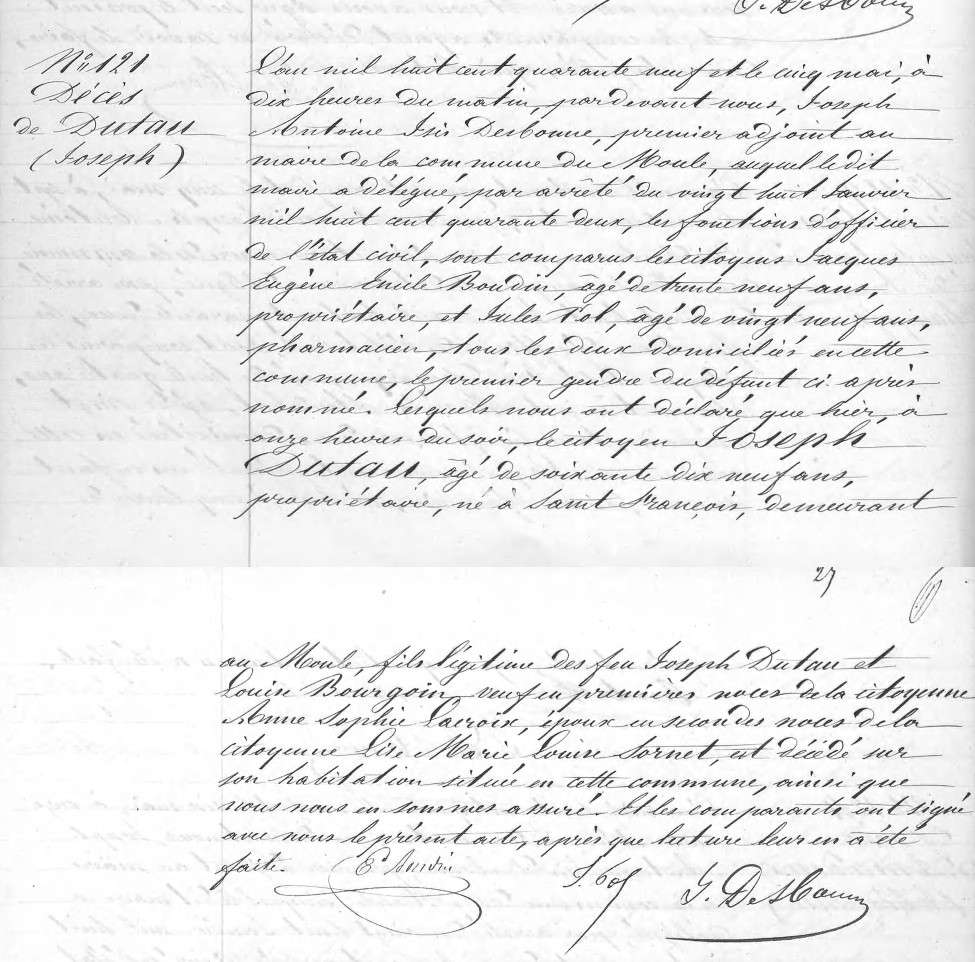 J. Desbonne
N° 121
Décès
de Dutau
(Joseph)
L'an mil huit cent quarante neuf et le cinq mai, à
dix heures du matin, pardevant nous, Joseph
Antoine Isis Desbonne, premier adjoint au
maire de la commune du Moule, auquel le dit
maire a délégué, par arrêté du vingt huit Janvier
mil huit cent quarante deux, les fonctions d'officier
de l'état civil, sont comparus les citoyens Jacques
Eugène Emile Boudin, âgé de trente neuf ans,
propriétaire, et Jules Pol, âgé de vingt neuf ans,
pharmacien, tous les deux domiciliés en cette
commune, le premier gendre du défunt ci-après
nommé. Lesquels nous ont déclaré que hier, à
onze heures du soir, le citoyen Joseph
Dutau, âgé de soixante dix neuf ans,
propriétaire, né à Saint François, demeurant
27
au Moule, fils légitime des feu Joseph Dutau et
Louise Bourgoin, veuf en premières noces de la citoyenne
Anne Sophie Lacroix, époux en secondes noces de la
citoyenne Lise Marie Louise Sornet, est décédé sur
son habitation située en cette commune, ainsi que
nous nous en sommes assuré. Et les comparants ont signé
avec nous le présent acte, après que lecture leur en a été
faite.
J. Desbonne